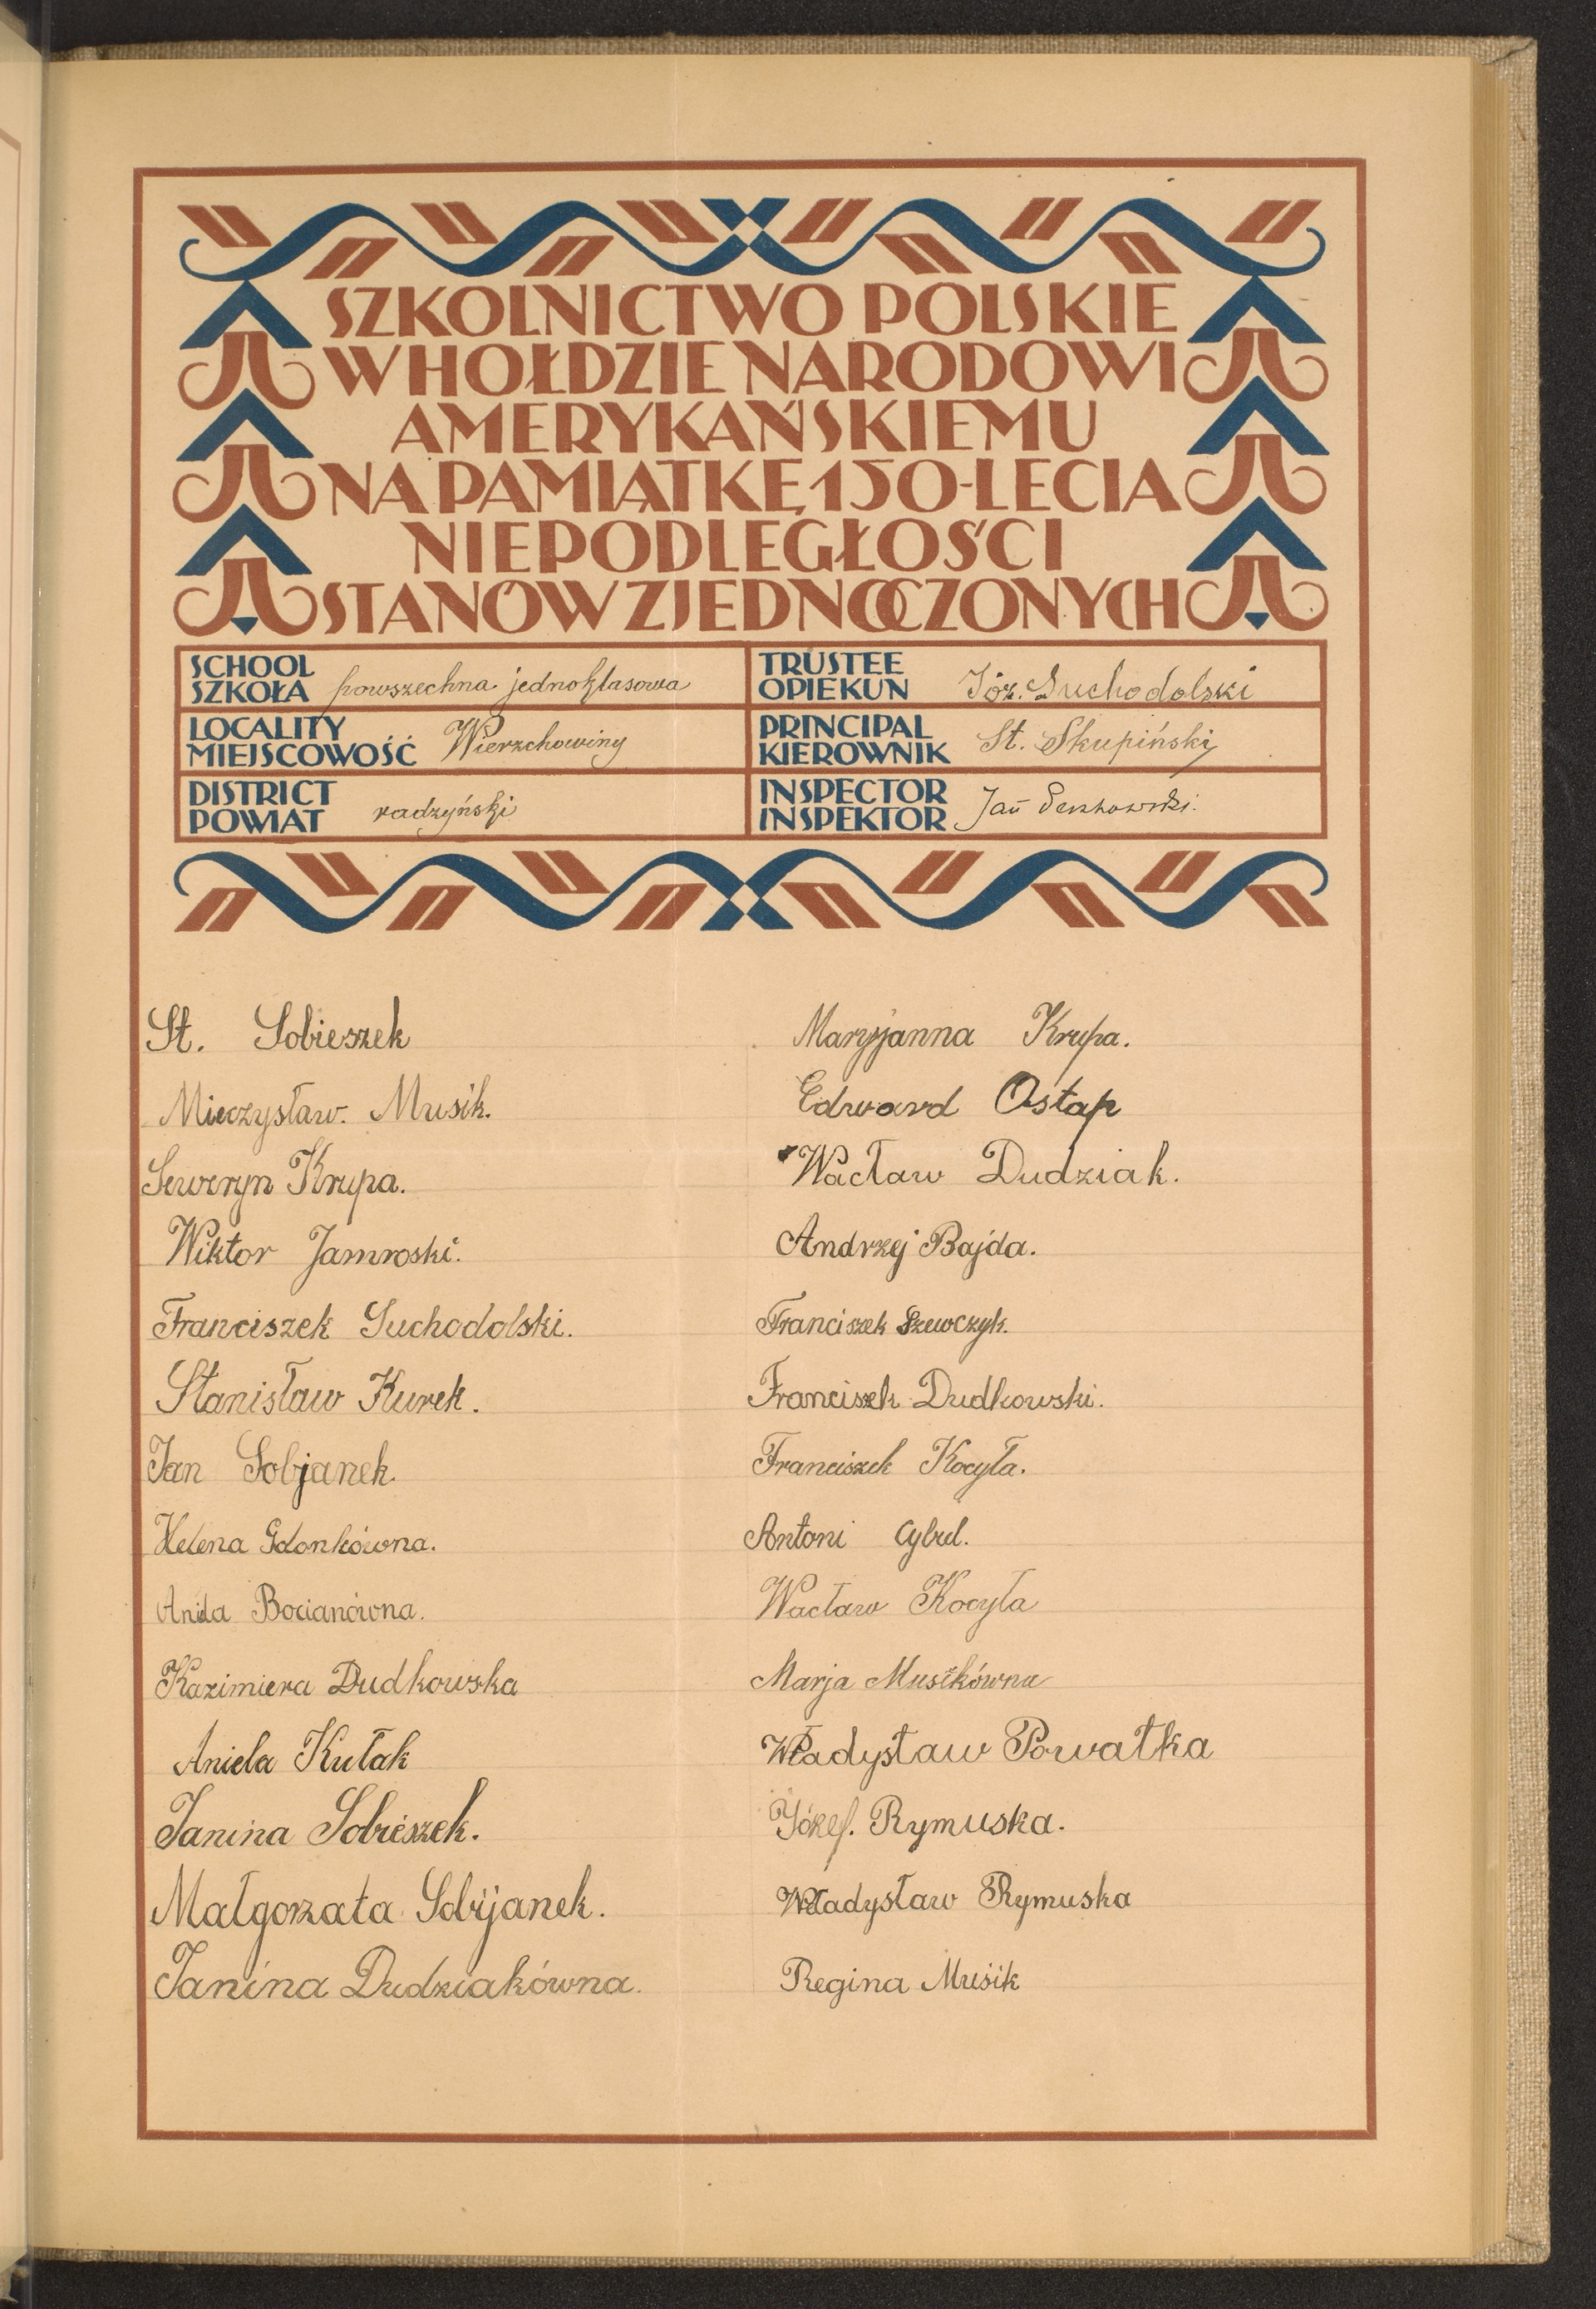 SZKOLNICTWO POLSKIE
W HOŁDZIE NARODOWI
AMERYKAŃSKIEMU
NA PAMIĄTKĘ 150-LECIA
NIEPODLEGŁOŚCI
STANÓW ZJEDNOCZONYCH
SCHOOL
SZKOŁA powszechna jednoklasowa
LOCALITY
MIEJSCOWOŚĆ Wierzchowiny
DISTRICT
POWIAT radzyński
TRUSTEE
OPIEKUN Józ. Suchodolski
PRINCIPAL
KIEROWNIK St. Skupiński
INSPECTOR
INSPEKTOR Jan
St. Sobieszek
Mieczysław. Musik.
Seweryn Krupa.
Wiktor Jamroski.
Franciszek Suchodolski.
Stanisław Kurek.
Jan Sobjanek.
Helena Gdonkówna.
Aniela Bocianówna.
Kazimiera Dudkowska
Aniela Kułak
Janina Sobieszek.
Małgorzata Sobijanek.
Janina Dudziakówna.
Maryjanna Krupa.
Edward Ostap
Wacław Dudziak.
Andrzej Bajda.
Franciszek Szewczyk.
Franciszek Dudkowski.
Franciszek Kocyła.
Antoni Cybul.
Wacław Kocyła
Marja Musikówna
Władysław Powałka
Józef. Rymuska.
Władysław Rymuska
Regina Musik